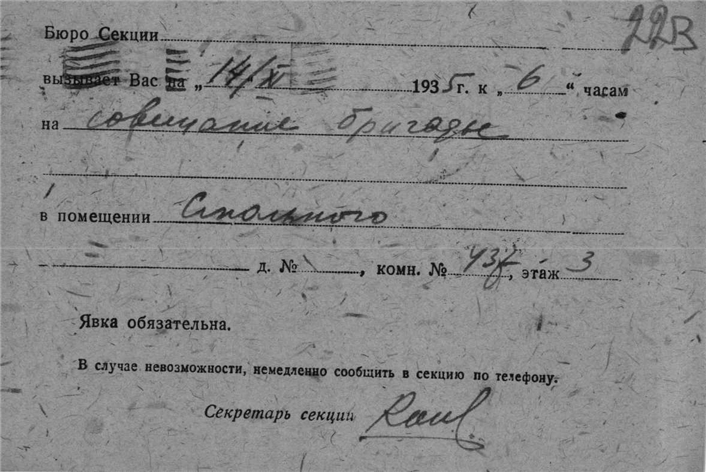 223
Бюро Секции
вызывает Вас на „14/XI 1935 г. к „6“ часам
на совещание бригады
в помещении Смольного
д. № , комн. № 437, этаж 3
Явка обязательна.
В случае невозможности, немедленно сообщить в секцию по телефону.
Секретарь секции